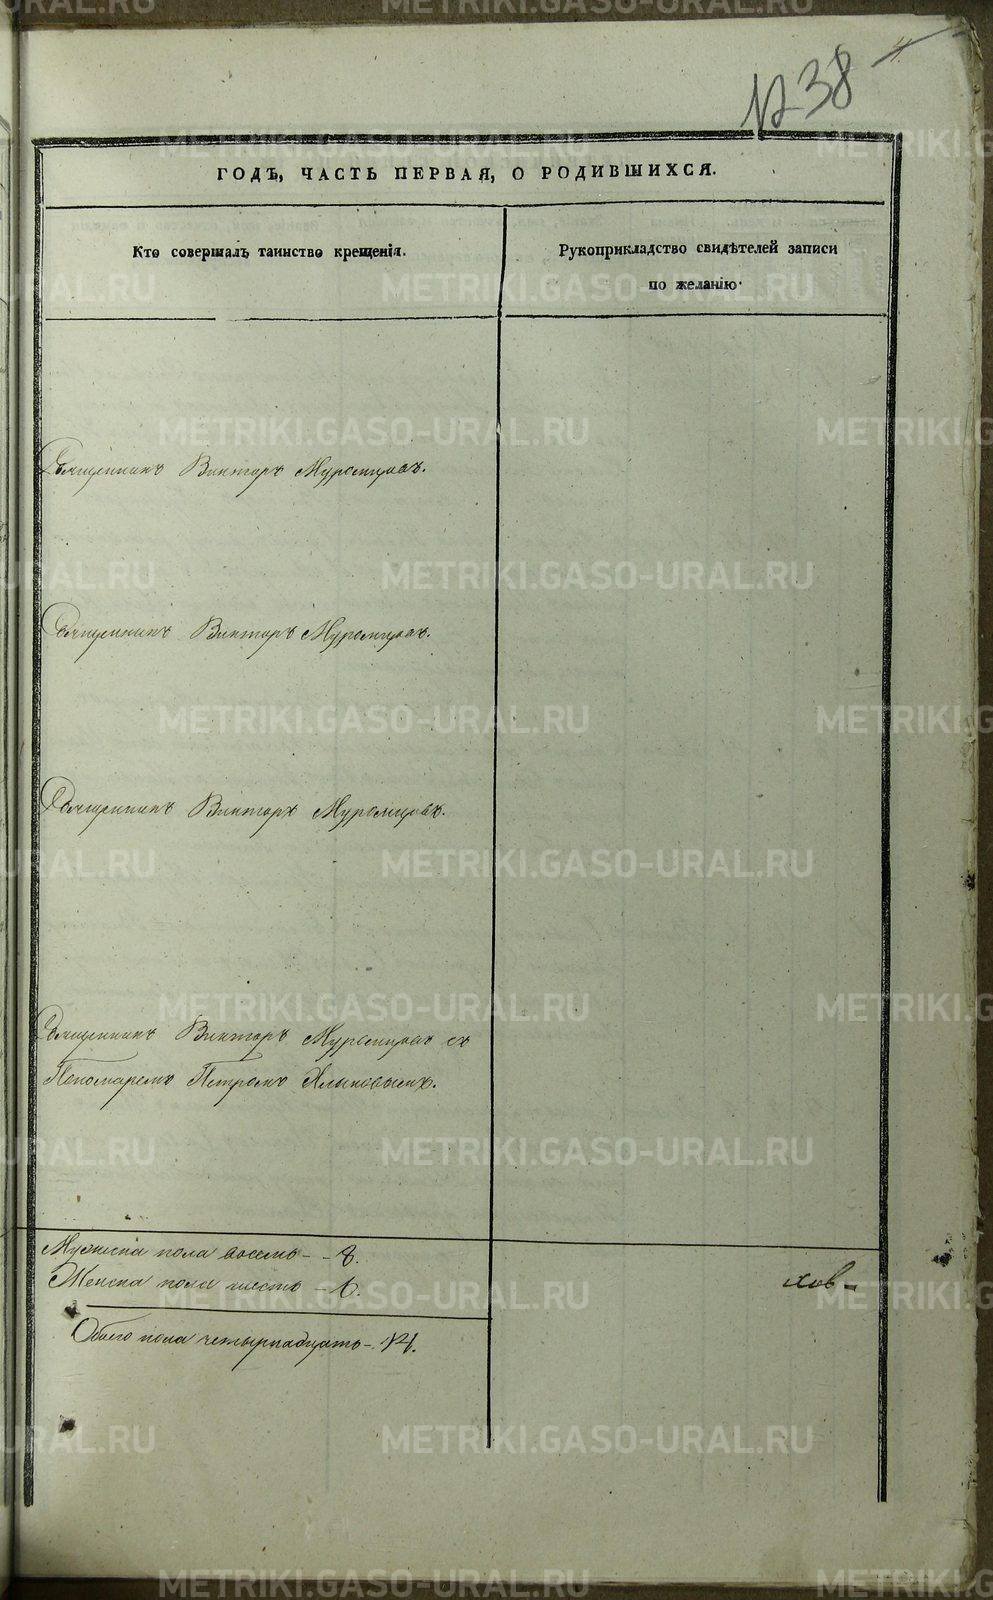 1238
4.
ГОДЪ, ЧАСТЬ ПЕРВАЯ, О РОДИВШИХСЯ.
Кто совершалъ таинство крещенія.
Рукоприкладство свидѣтелей записи
по желанію.
Священникъ Викторъ Муромцовъ.
Священникъ Викторъ Муромцовъ.
Священникъ Викторъ Муромцовъ.
Священникъ Викторъ Муромцовъ съ
Пономаремъ Петромъ Хлыновымъ.
Мужеска пола восемь - - 8.
Женска пола шесть - 6.
Обоего пола четырнадцать - 14.
ховъ-
METRIKI.GASO-URAL.RU